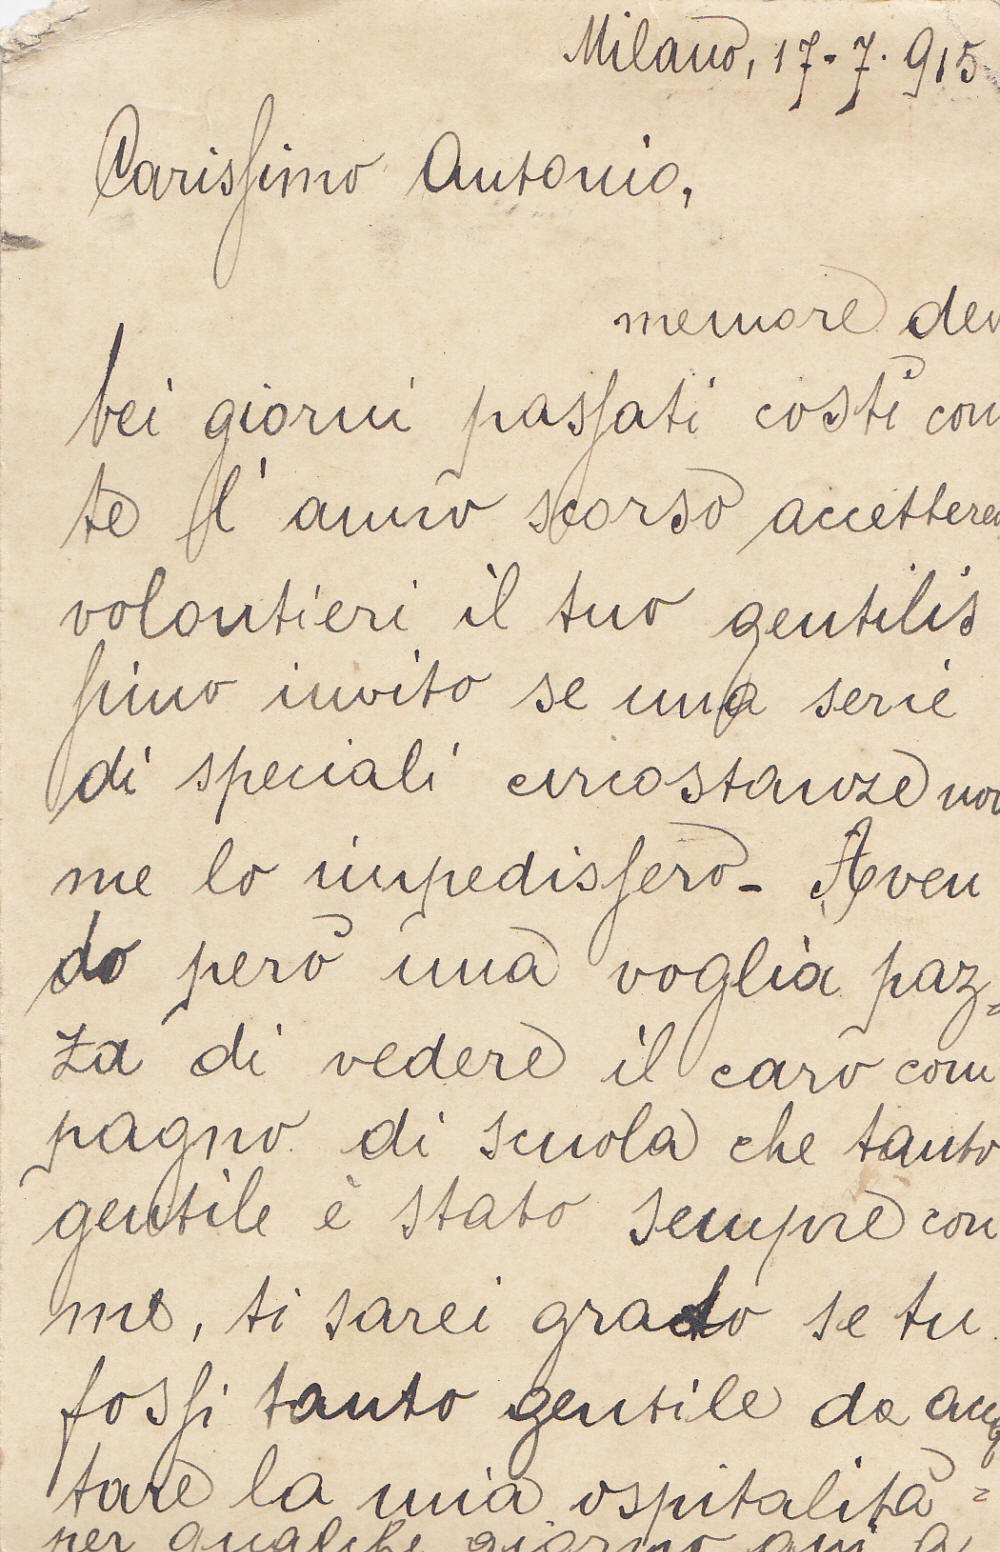 Milano, 17-7-915
Carissimo Antonio,
memore dei
bei giorni passati costì con
te l'anno scorso accetterei
volontieri il tuo gentilis
simo invito se una serie
di speciali circostanze non
me lo impedissero- Aven
do però una voglia paz=
za di vedere il caro com
pagno di scuola che tanto
gentile è stato sempre con
me, ti sarei grado se tu
fossi tanto gentile da accet
tare la mia ospitalità =
per qualche giorno qui a